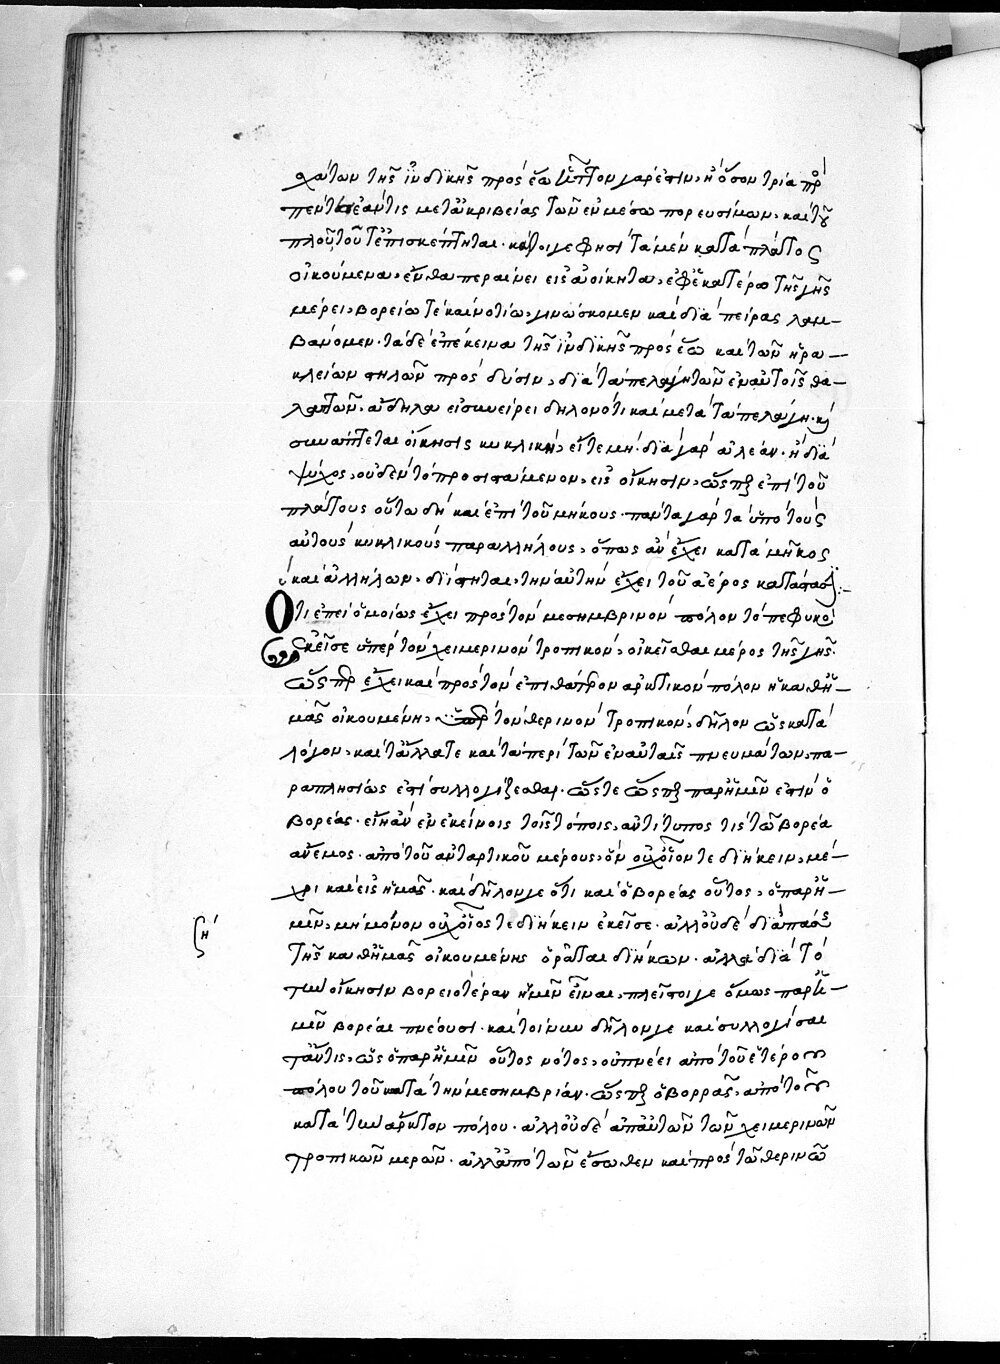 χάτων τῆς ἰνδικῆς πρὸς ἕω πλεῖστον γάρ ἐστιν, ἢ ὅσον τρία πρ
πέντε ἐάν τις μετ' ἀκριβείας τῶν ἐν μέσω πορευσίμων, καὶ τοῦ
πλοῦ τοῦτ' ἐπισκέπτηται. καί τοί γέ φησι τὰ μὲν κατὰ πλάτος
οἰκούμενα, ἔνθα περαίνει εἰς ἀοίκητα, ἐφ' ἑκατέρω τῆς γῆς
μέρει, βορείω τε καὶ νοτίω, γινώσκομεν καὶ διὰ πείρας λαμ-
βάνομεν. τὰ δὲ ἐπέκεινα τῆς ἰνδικῆς πρὸς ἕω καὶ τῶν ἡρα-
κλείων στηλῶν πρὸς δύσιν, διὰ τὰ πελάγη τῶν ἐν αὐτοῖς θα-
λαττῶν. ἄδηλα εἰ συνείρει δηλονότι καὶ μετὰ τὰ πελάγη. καὶ
συνάπτεται οἴκησις κυκλικὴ, εἴτε μή. διὰ γὰρ ἀλέαν. ἢ διὰ
ψύχος, οὐδὲν τὸ προσιστάμενον, εἰς οἴκησιν, ὥσπερ ἐπὶ τοῦ
πλάτους οὕτω δὴ καὶ ἐπὶ τοῦ μήκους. πάντα γὰρ τὰ ὑπὸ τοὺς
αὐτοὺς κυκλικοὺς παραλλήλους, ὅπως ἂν ἔχει κατὰ μῆκος
καὶ ἀλλήλων, διίστηται, τὴν αὐτὴν ἔχει τοῦ ἀέρος κατάστασιν:-
Ὅτι ἐπεὶ ὁμοίως ἔχει πρὸς τὸν μεσημβρινὸν πόλον τὸ πεφυκὸς
ἐκεῖσε ὑπὲρ τὸν χειμερινὸν τροπικὸν, οἰκεῖσθαι μέρος τῆς γῆς.
ὥσπερ ἔχει καὶ πρὸς τὸν ἐπὶ θάτερον ἀρκτικὸν πόλον ἡ καθ' ἡ-
μᾶς οἰκουμένη, ὑπὲρ τὸν θερινὸν τροπικὸν, δῆλον ὡς κατὰ
λόγον, καὶ τἄλλα τε καὶ τὰ περὶ τῶν ἐν αὐταῖς πνευμάτων, πα-
ραπλησίως ἐπισυλλογίζεσθαι. ὥστε ὥσπερ παρ' ἡμῖν ἐστιν ὁ
βορέας. εἴη ἂν ἐν ἐκείνοις τοῖς τόποις, ἀντίτυπος τις τῶ βορέα
ἄνεμος. ἀπὸ τοῦ ἀνταρτικοῦ μέρους, ὃν οὐχ οἷόν τε διήκειν, μέ-
χρι καὶ εἰς ἡμᾶς. καὶ δῆλόν γε ὅτι καὶ ὁ βορέας οὗτος, ὁ παρ' ἡ-
μῖν, μὴ μόνον οὐχ οἷός τε διήκειν ἐκεῖσε. ἀλλ' οὐδὲ διὰ πάσης
τῆς καθ' ἡμᾶς οἰκουμένης ὁρᾶται διήκων. ἀλλὰ διὰ τὸ
τὴν οἴκησιν βορειοτέραν ἡμῖν εἶναι, πλεῖστοί γε ὅμως παρ' ἡ-
μῖν βορέαι πνέουσι. καὶ τοίνυν δῆλόν γε καὶ συλλογίσαι
ταῦτις, ὡς ὁ παρ' ἡμῖν οὗτος νότος, οὐ πνέει ἀπὸ τοῦ ἑτέρου
πόλου τοῦ κατὰ τὴν μεσημβρίαν. ὥσπερ ὁ βορρᾶς, ἀπὸ τοῦ
κατὰ τὴν ἄρκτον πόλου. ἀλλ' οὐδὲ ἀπ' αὐτῶν τῶν χειμερινῶν
τροπικῶν μερῶν. ἀλλ' ἀπὸ τῶν ἔσωθεν καὶ πρὸς τῶ θερινῶ